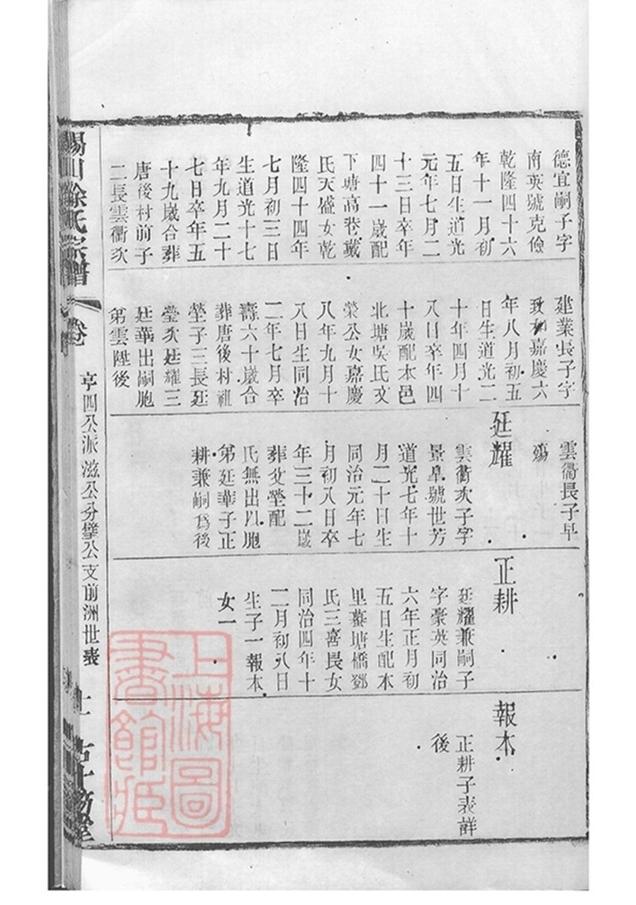 德宜嗣子字
南英號克儉
乾隆四十六
年十一月初
五日生道光
元年七月二
十三日卒年
四十一歲配
下塘高巷戴
氏天盛女乾
隆四十四年
七月初三日
生道光十七
年九月二十
七日卒年五
十九歲合葬
唐後村前子
二長雲衢次
建業長子字
致和嘉慶六
年八月初五
日生道光二
十年四月十
八日卒年四
十歲配本邑
北塘吳氏文
榮公女嘉慶
八年九月十
八日生同治
二年七月卒
壽六十歲合
葬唐後村祖
塋子三長廷
瑩次廷耀三
廷華出嗣胞
弟雲陞後
雲衢長子早
殤
廷耀
雲衢次子字
景阜號世芳
道光七年十
月二十日生
同治元年七
月初八日卒
年三十二歲
葬父塋配
氏無出以胞
弟廷華子正
耕兼嗣爲後
正耕
廷耀兼嗣子
字豪英同治
六年正月初
五日生配本
里蓉塘橋鄧
氏三喜長女
同治四年十
二月初八日
生子一報本
女一
報本
正耕子表詳
後
錫山徐氏宗譜
卷
亨四公派滋公分肇公支前洲世表
上海圖書館藏